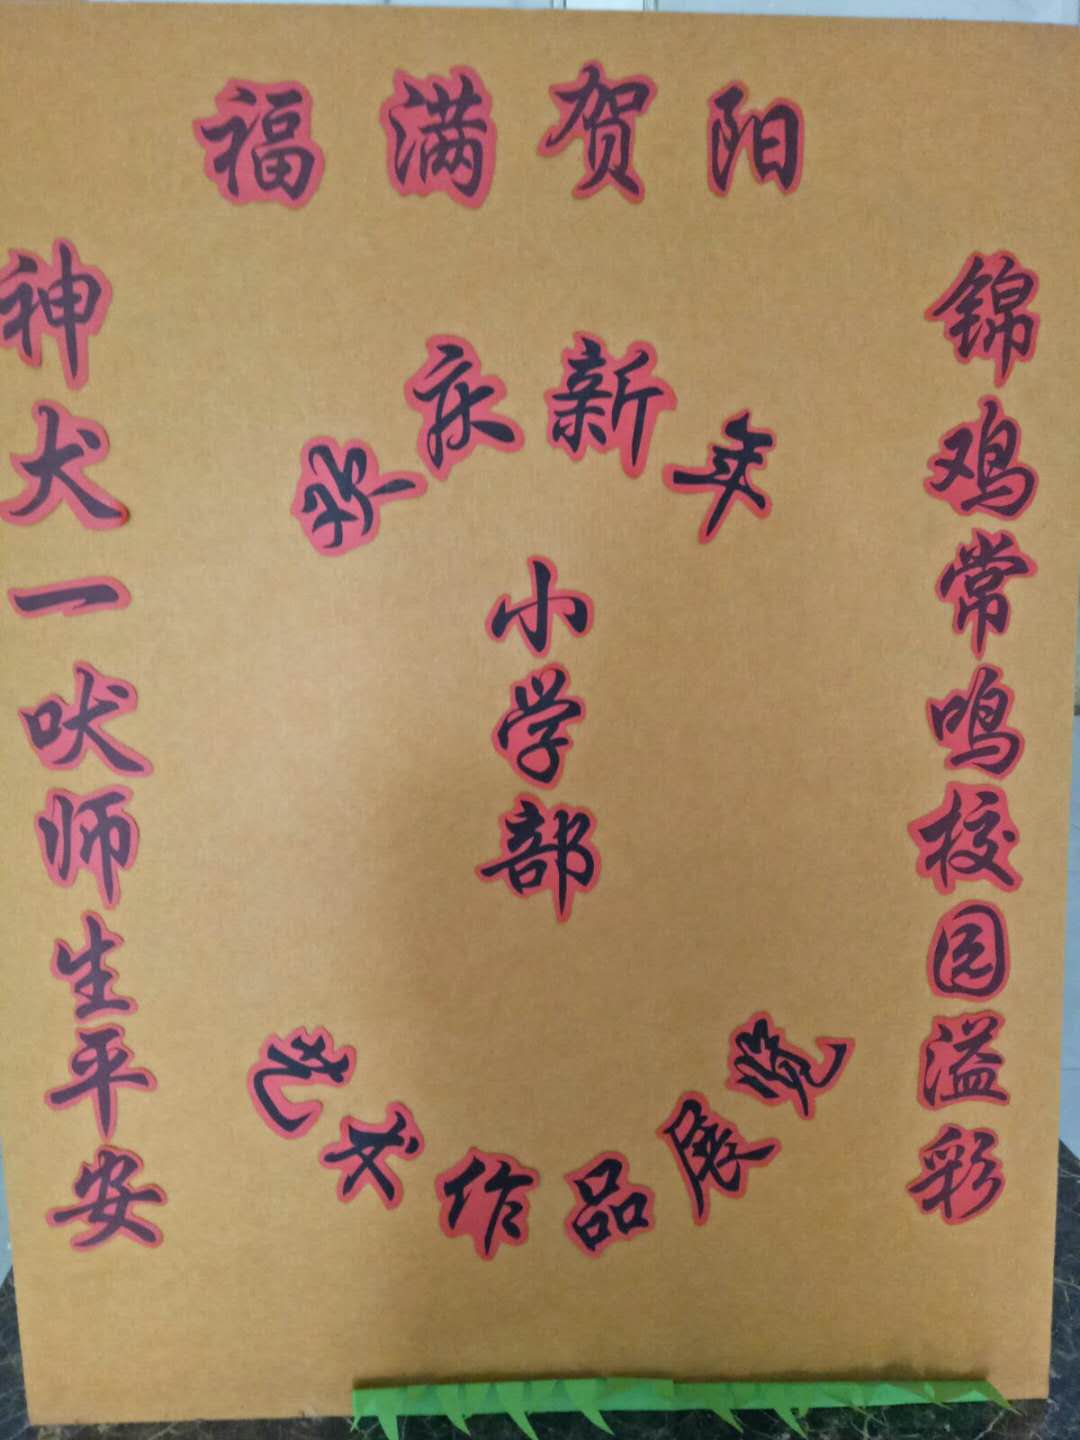 福满贺阳
锦鸡常鸣校园溢彩
神犬一吠师生平安
欢庆新年
小学部
艺术作品展览